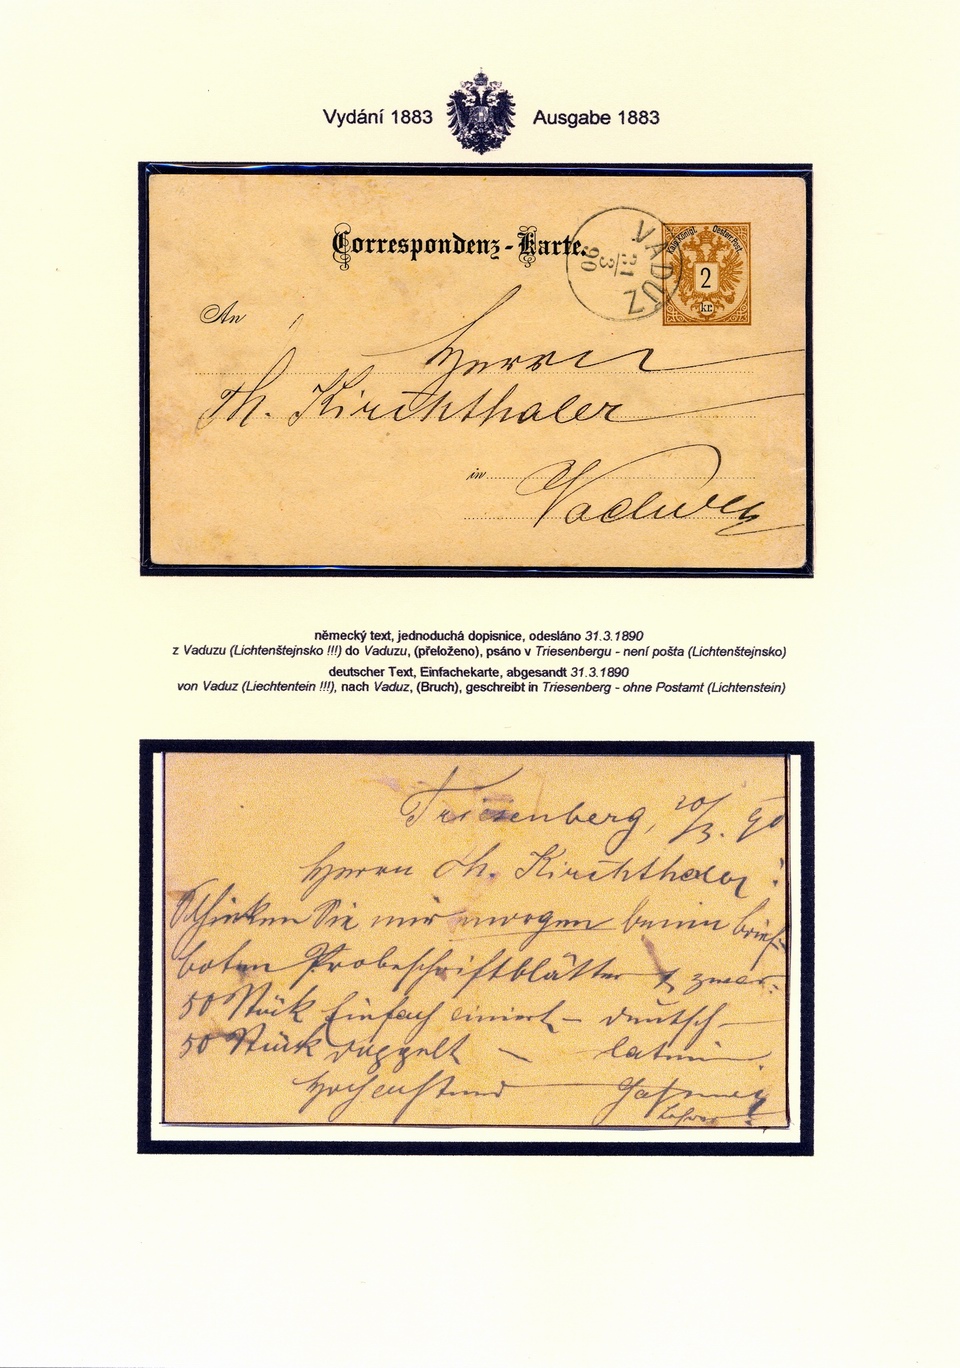 Vydání 1883
Ausgabe 1883
Correspondenz-Karte.
VADUZ
31/3
90
Kais. Königl. Oesterr. Post
2
kr.
An
Herrn
Th. Kirchthaler
in
Vaduz
německý text, jednoduchá dopisnice, odesláno 31.3.1890
z Vaduzu (Lichtenštejnsko !!!) do Vaduzu, (přeloženo), psáno v Triesenbergu - není pošta (Lichtenštejnsko)
deutscher Text, Einfachekarte, abgesandt 31.3.1890
von Vaduz (Liechtentein !!!), nach Vaduz, (Bruch), geschreibt in Triesenberg - ohne Postamt (Lichtenstein)
Triesenberg, /3. 90
Herrn Th. Kirchthaler!
Schicken Sie mir morgen beim brief-
boten Probeschriftblätter zwar:
50 Stück Einfach liniert - deutsch -
50 Stück doppelt - latein.
Hochachtend
Lehrer